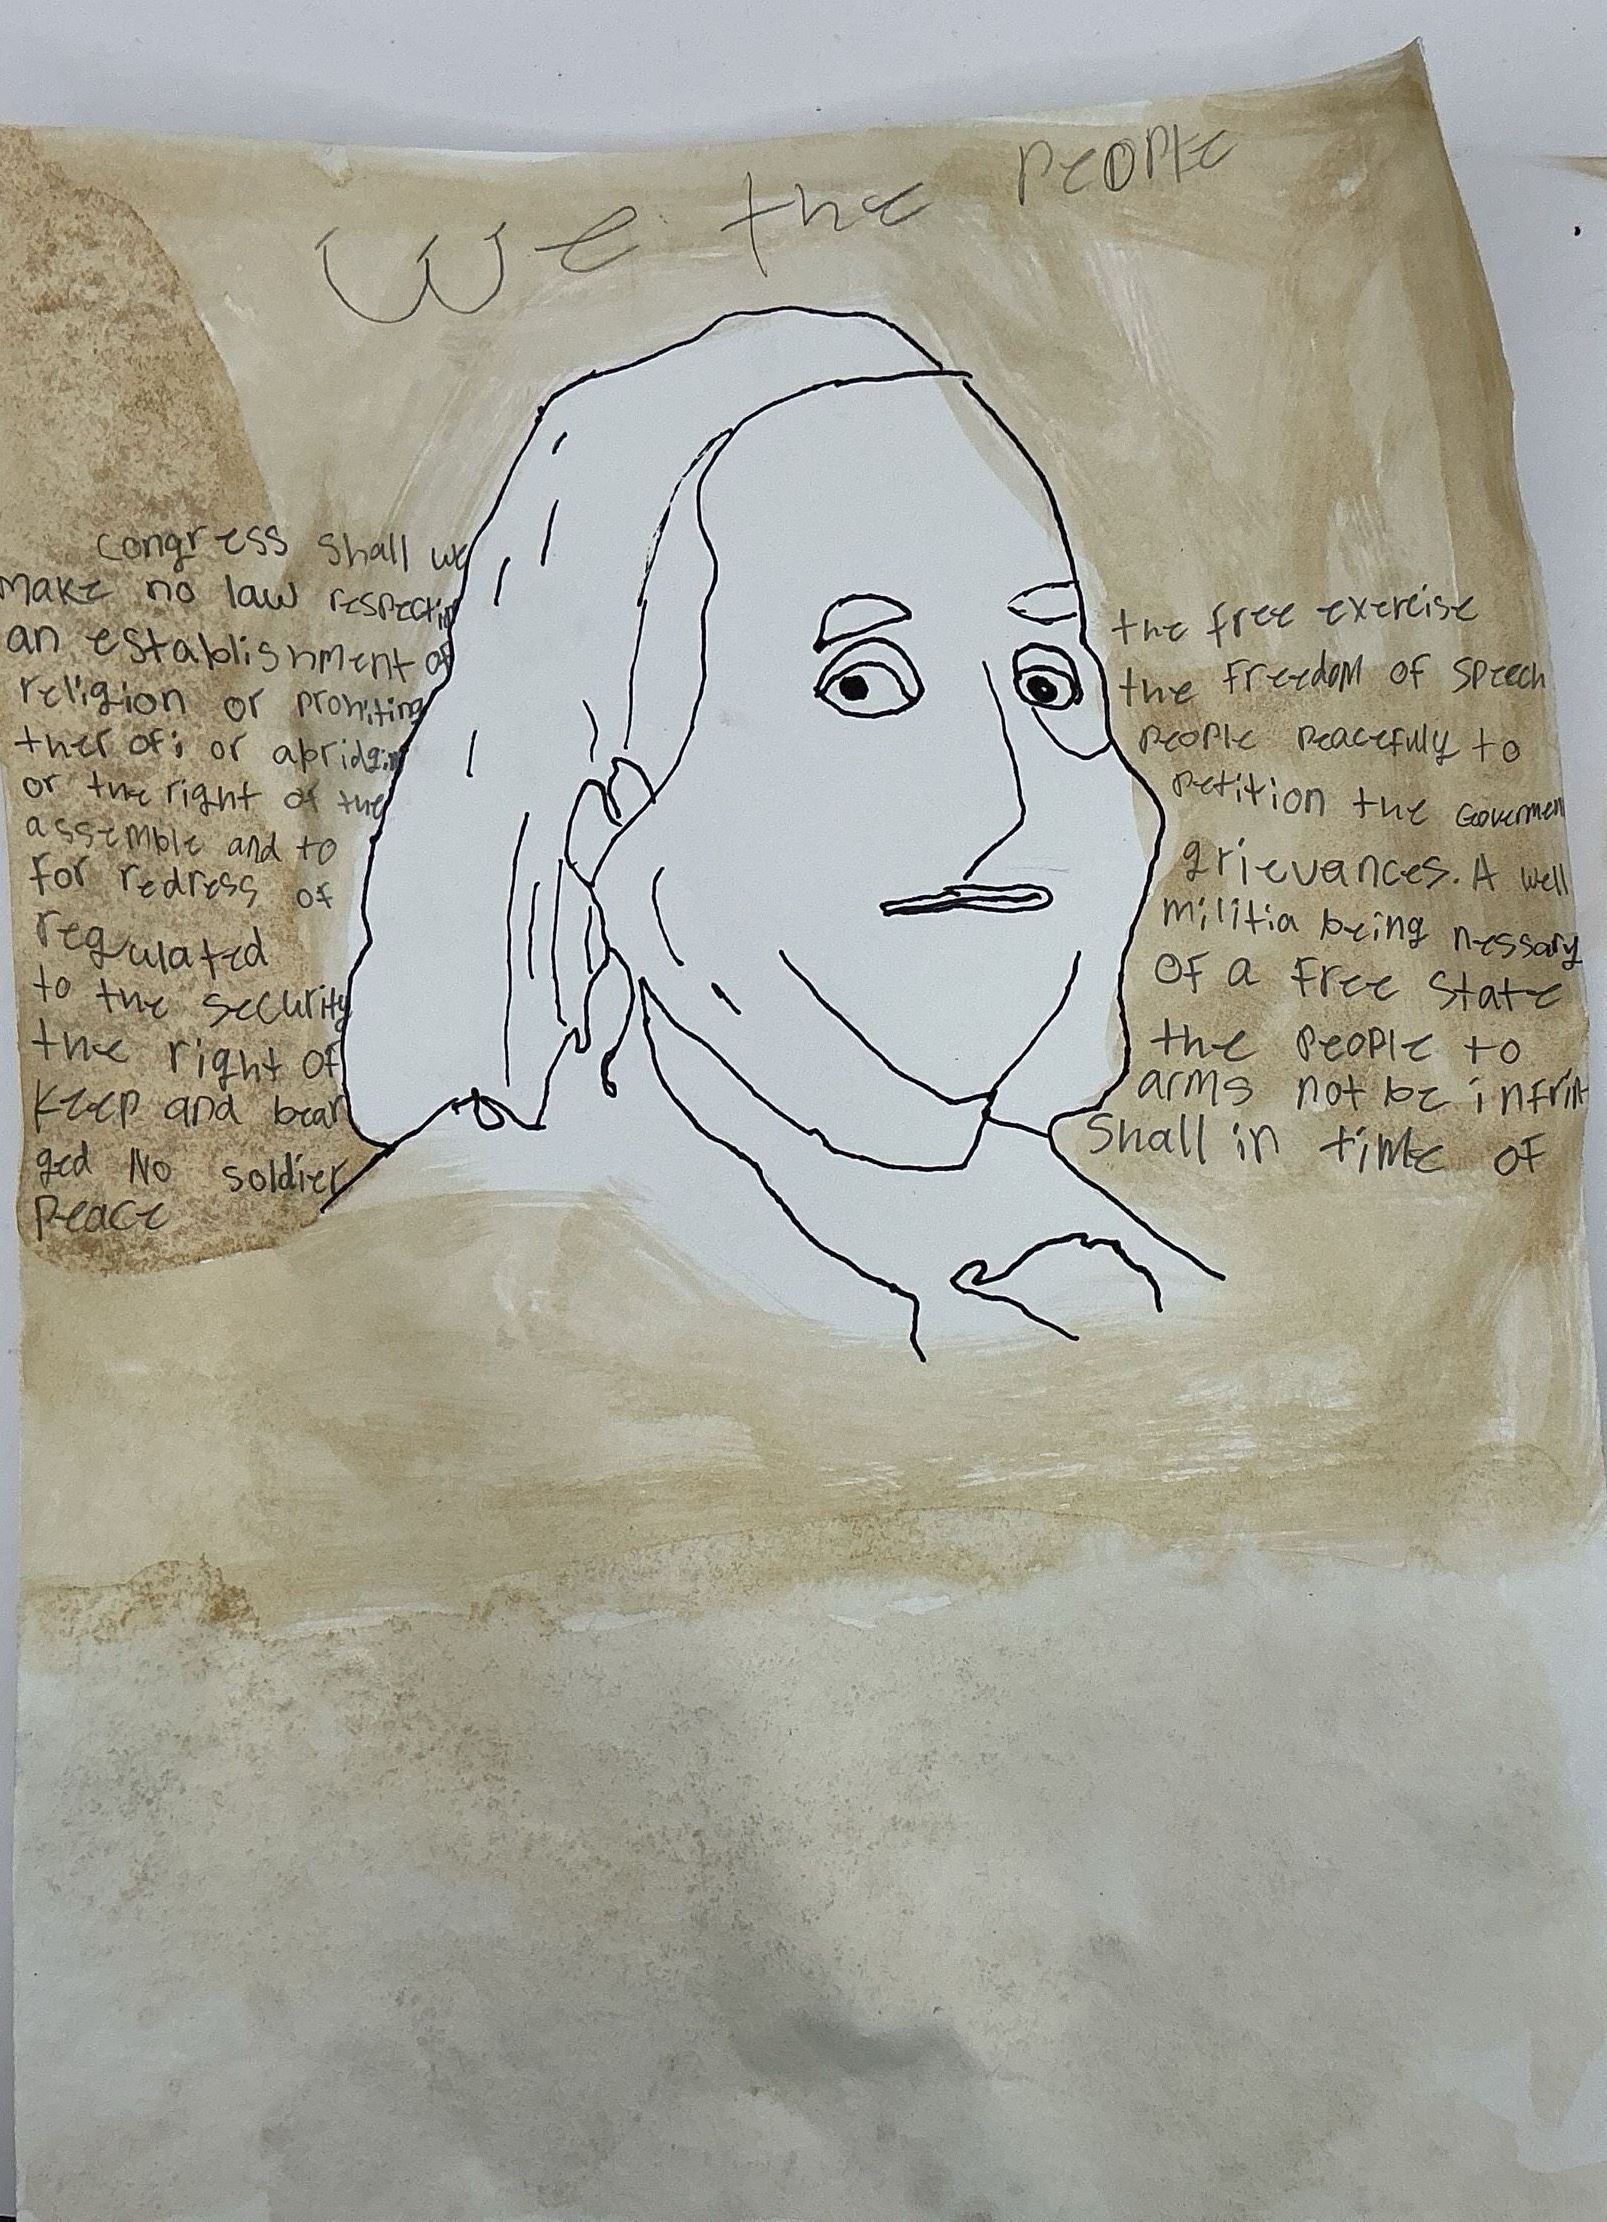 we the people
Congress shall we
make no law respectin
an establishment of
religion or prohiting the free exercise
ther of; or abridgin the freedom of speech
or the right of the people peacefuly to
assemble and to petition the Govermen
for redress of grievances. A well
regulated militia being nessary
to the security of a free state
the right of the people to
keep and bear arms not be infrin
ged No soldier shall in time of
peace